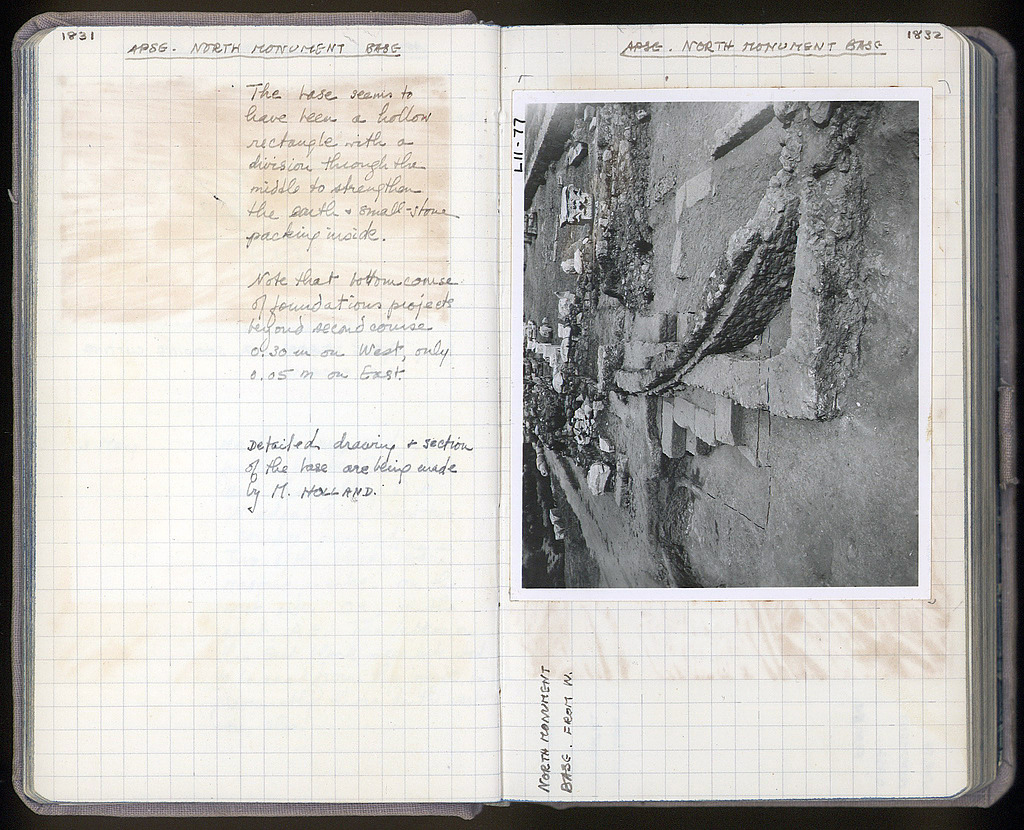 1831
APSG. NORTH MONUMENT BASE
The base seems to
have been a hollow
rectangle with a
division through the
middle to strengthen
the earth + small-stone
packing inside.
Note that bottom course
of foundations projects
beyond second course
0.30 m on West, only
0.05 m on East.
Detailed drawing + section
of the base are being made
by M. HOLLAND.
1832
APSG. NORTH MONUMENT BASE
LII-77
NORTH MONUMENT
BASE. FROM W.